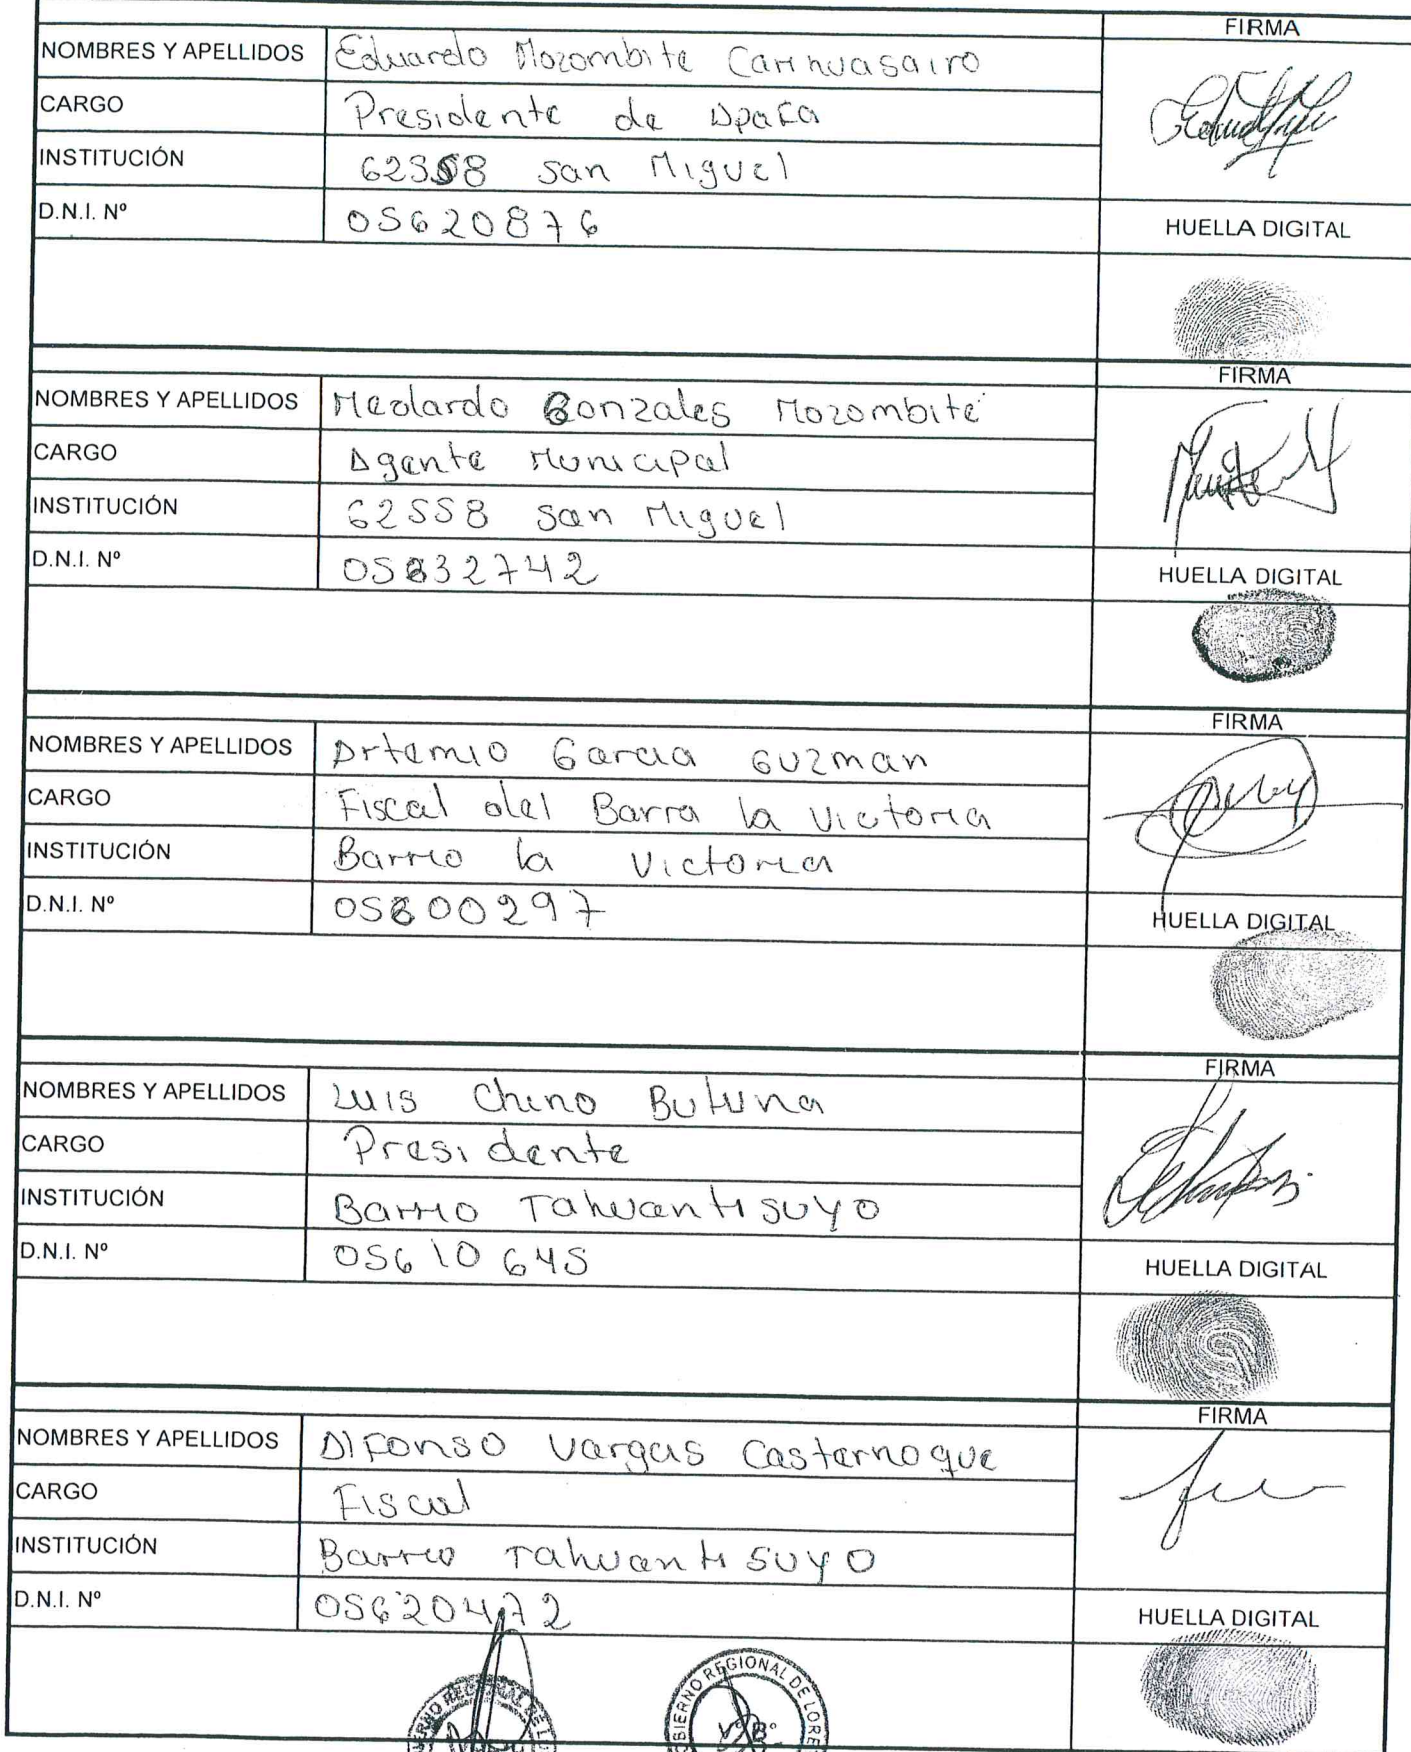 FIRMA
NOMBRES Y APELLIDOS Eduardo Mozombite Carihuasairo
CARGO Presidente de Apafa
INSTITUCIÓN 62558 San Miguel
D.N.I. Nº 05620876
HUELLA DIGITAL
FIRMA
NOMBRES Y APELLIDOS Medardo Gonzales Mozombite
CARGO Agente Municipal
INSTITUCIÓN 62558 San Miguel
D.N.I. Nº 32742
HUELLA DIGITAL
FIRMA
NOMBRES Y APELLIDOS Artemio Garcia Guzman
CARGO Fiscal del Barra la Victoria
INSTITUCIÓN Barrio la Victoria
D.N.I. Nº 00297
HUELLA DIGITAL
FIRMA
NOMBRES Y APELLIDOS Luis Chino Butuna
CARGO Presidente
INSTITUCIÓN Barrio Tahuantisuyo
D.N.I. Nº 05610645
HUELLA DIGITAL
FIRMA
NOMBRES Y APELLIDOS Alfonso Vargas Casternoque
CARGO Fiscal
INSTITUCIÓN Barrio Tahuantisuyo
D.N.I. Nº 05620472
HUELLA DIGITAL
REGIONAL DE
V°B°